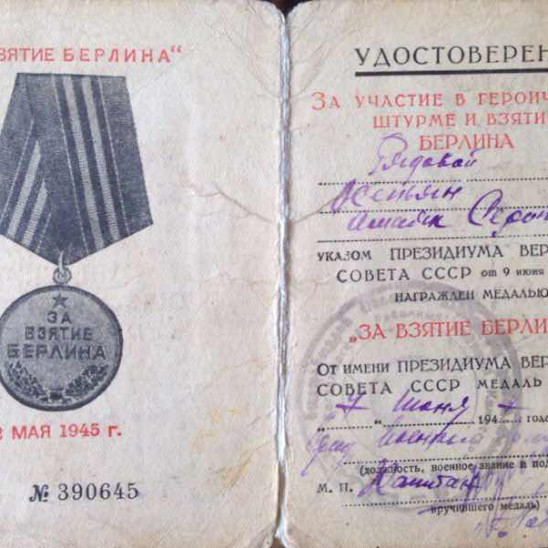 ЗЯТИЕ БЕРЛИНА"
ЗА
ВЗЯТИЕ
БЕРЛИНА
2 МАЯ 1945 г.
№ 390645
УДОСТОВЕРЕН
ЗА УЧАСТИЕ В ГЕРОИЧ
ШТУРМЕ И ВЗЯТИ
БЕРЛИНА
Рядовой
УКАЗОМ ПРЕЗИДИУМА ВЕР
СОВЕТА СССР от 9 июня
НАГРАЖДЕН МЕДАЛЬЮ
„ЗА ВЗЯТИЕ БЕРЛИ
ОТ ИМЕНИ ПРЕЗИДИУМА ВЕР
СОВЕТА СССР МЕДАЛЬ
"7" Июня 1947 года
(должность, военное звание и по
М. П. Капитан
вручившего медаль)